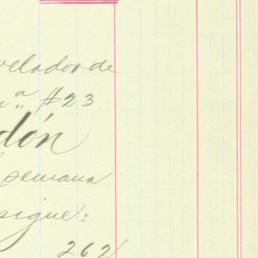 velador de
nª #23
dón
semana
sigue:
262